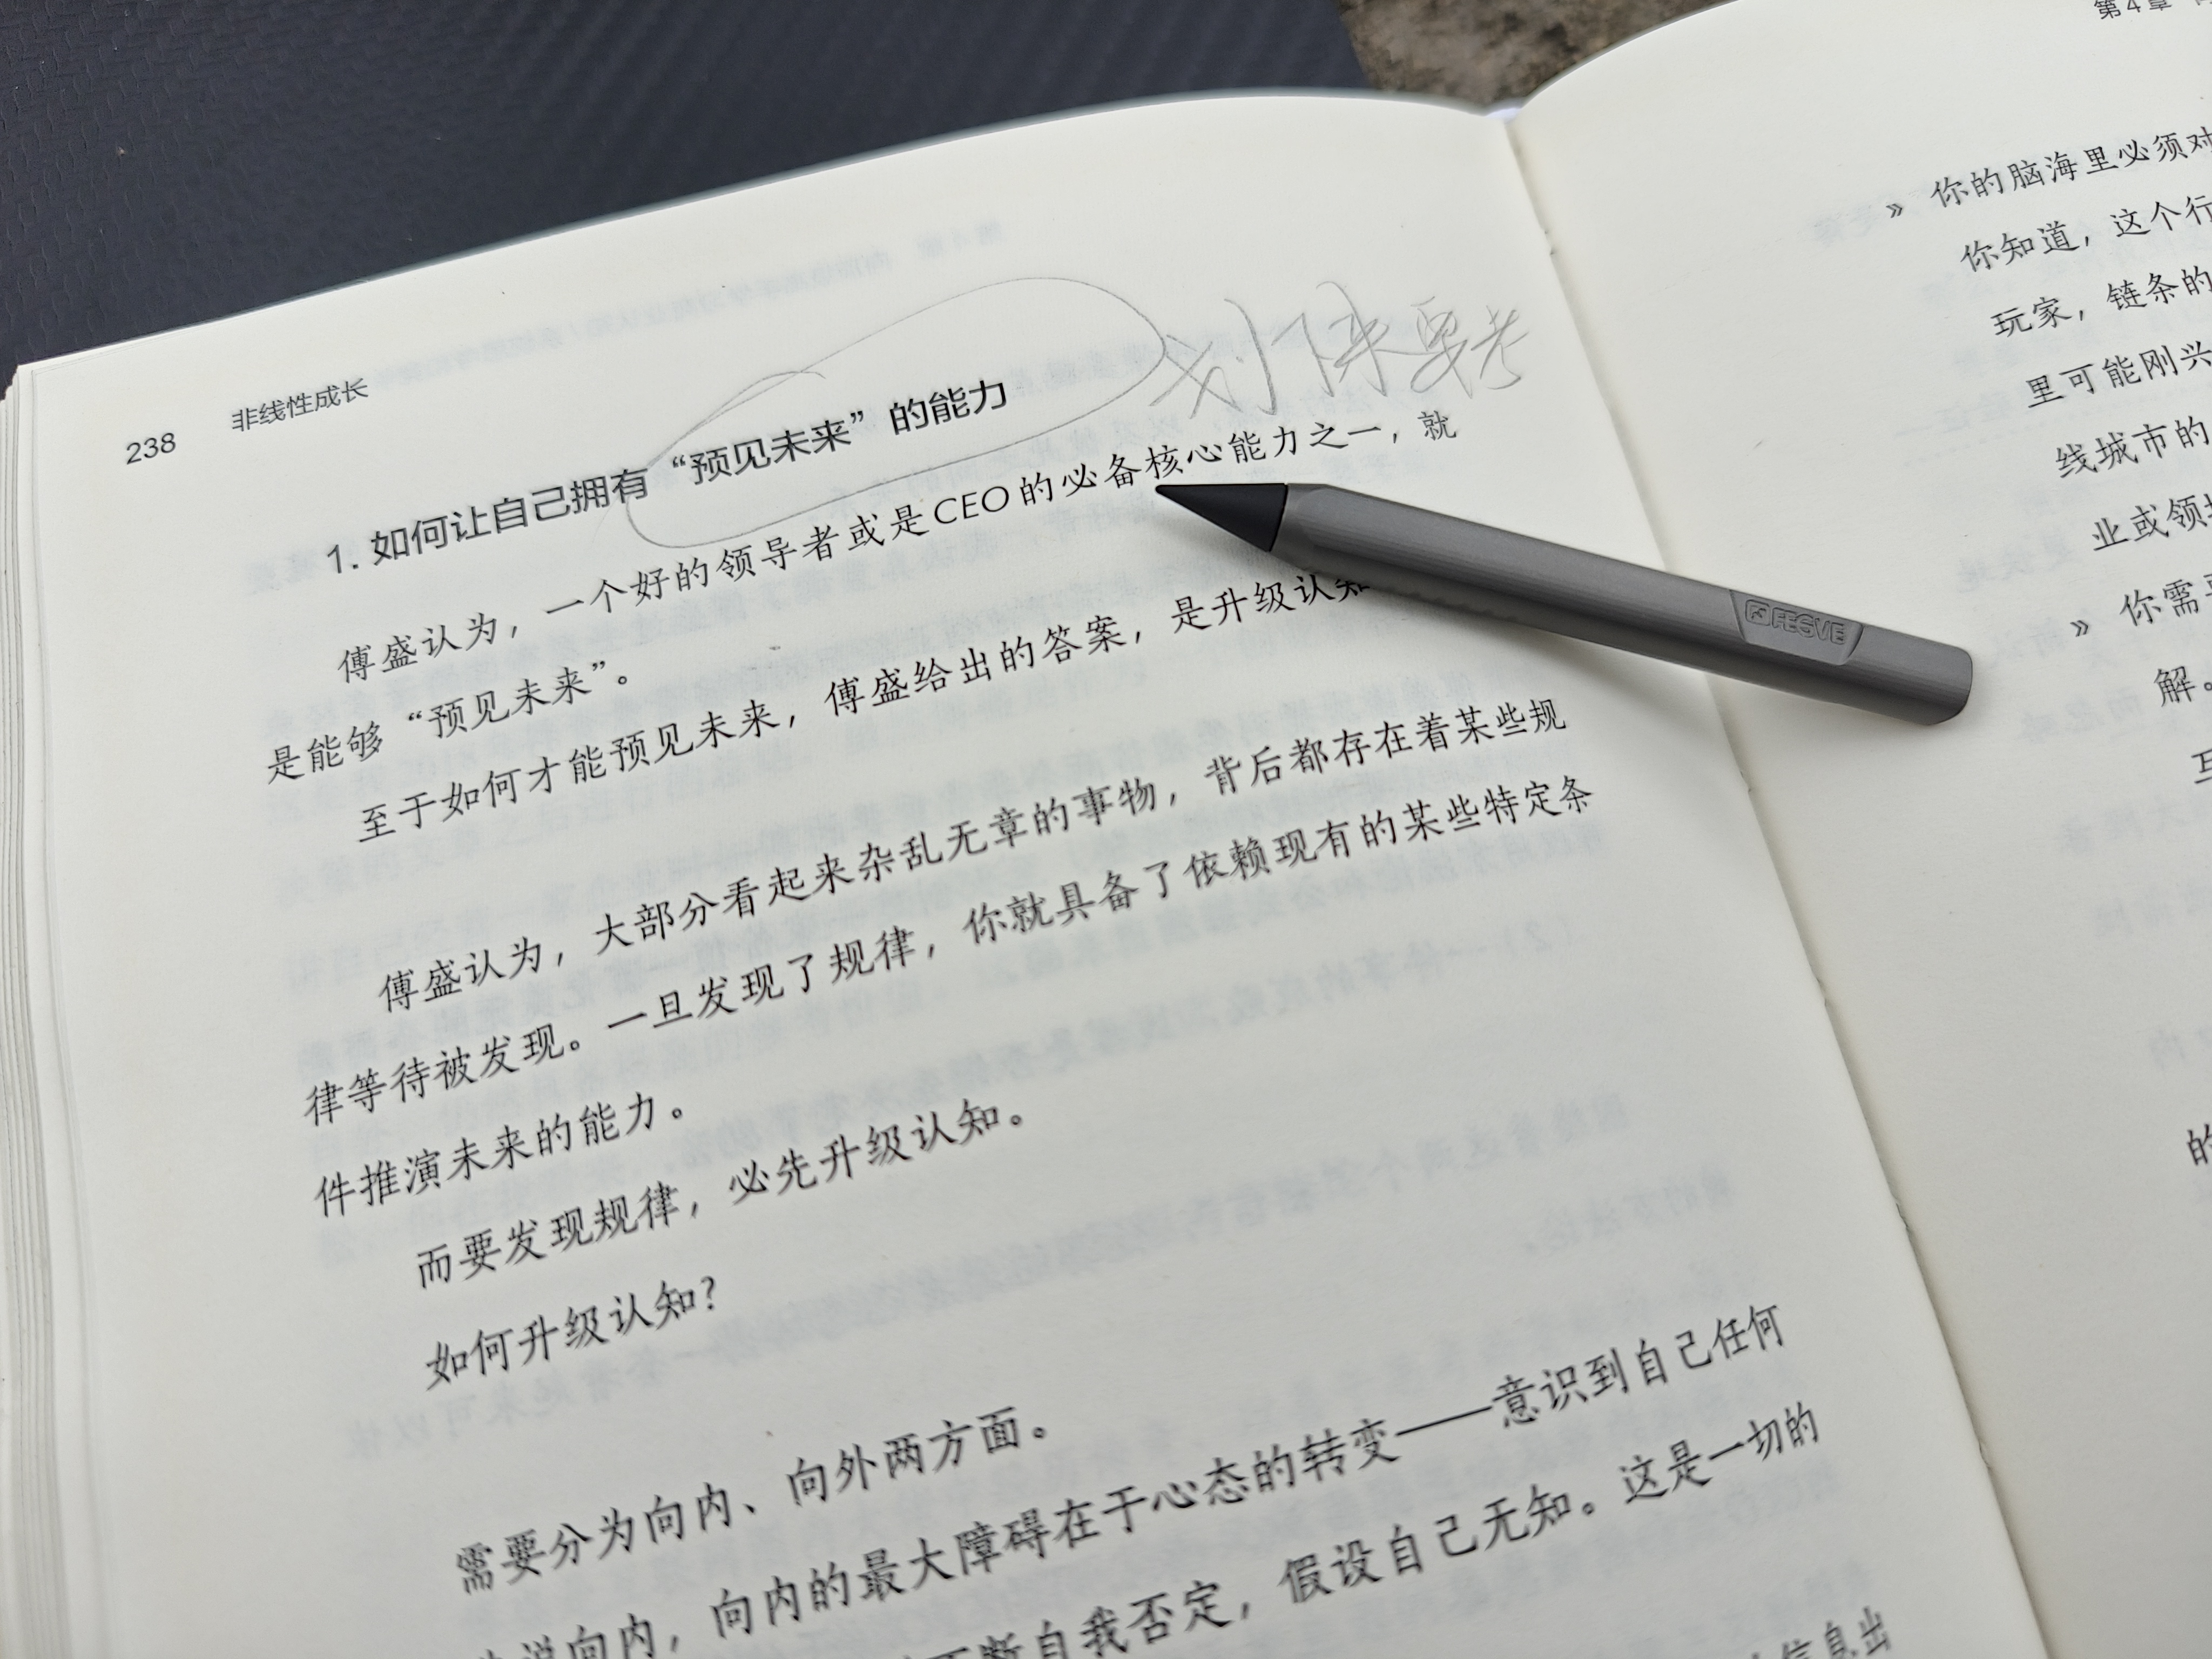 238 非线性成长
1. 如何让自己拥有“预见未来”的能力
划下来要考
傅盛认为，一个好的领导者或是CEO的必备核心能力之一，就
是能够“预见未来”。
至于如何才能预见未来，傅盛给出的答案，是升级认知
傅盛认为，大部分看起来杂乱无章的事物，背后都存在着某些规
律等待被发现。一旦发现了规律，你就具备了依赖现有的某些特定条
件推演未来的能力。
而要发现规律，必先升级认知。
如何升级认知？
需要分为向内、向外两方面。
说向内，向内的最大障碍在于心态的转变——意识到自己任何
断自我否定，假设自己无知。这是一切的
信息出
FEGVE
第4章
» 你的脑海里必须对
你知道，这个行
玩家，链条的
里可能刚兴
线城市的
业或领域
» 你需要
解。
的